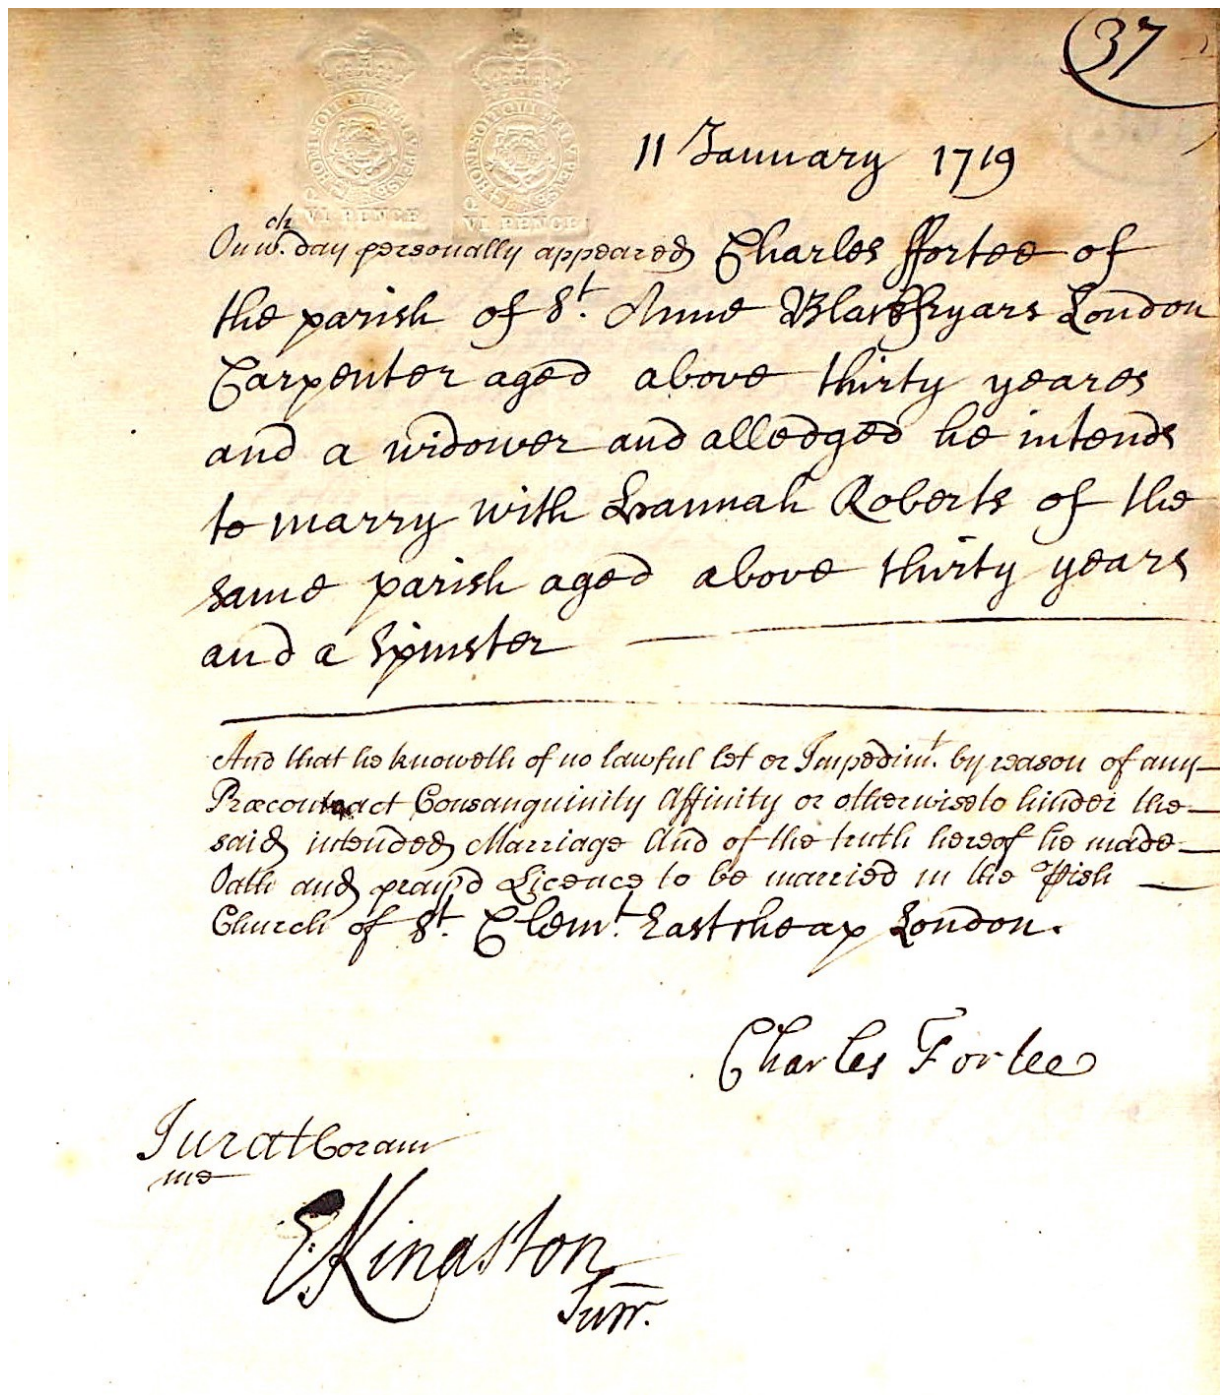 37
11 January 1719
HONI SOIT QUI MAL Y PENSE HONI SOIT QUI MAL Y PENSE
VI PENCE VI PENCE
On wch. day personally appeared Charles ffortee of
the parish of St. Anne Blackfryars London
Carpenter aged above thirty yeares
and a widower and alledged he intends
to marry with Hannah Roberts of the
same parish aged above thirty years
and a Spinster
And that he knoweth of no lawful let or Impedimt. by reason of any
Præcontract Consanguinity Affinity or otherwise to hinder the
said intended Marriage And of the truth hereof he made
Oath and pray'd Licence to be married in the Pish
Church of St. Clemt. Eastcheap London.
Charles Fortee
Jurat Coram
me
E: Kingston
Surr.